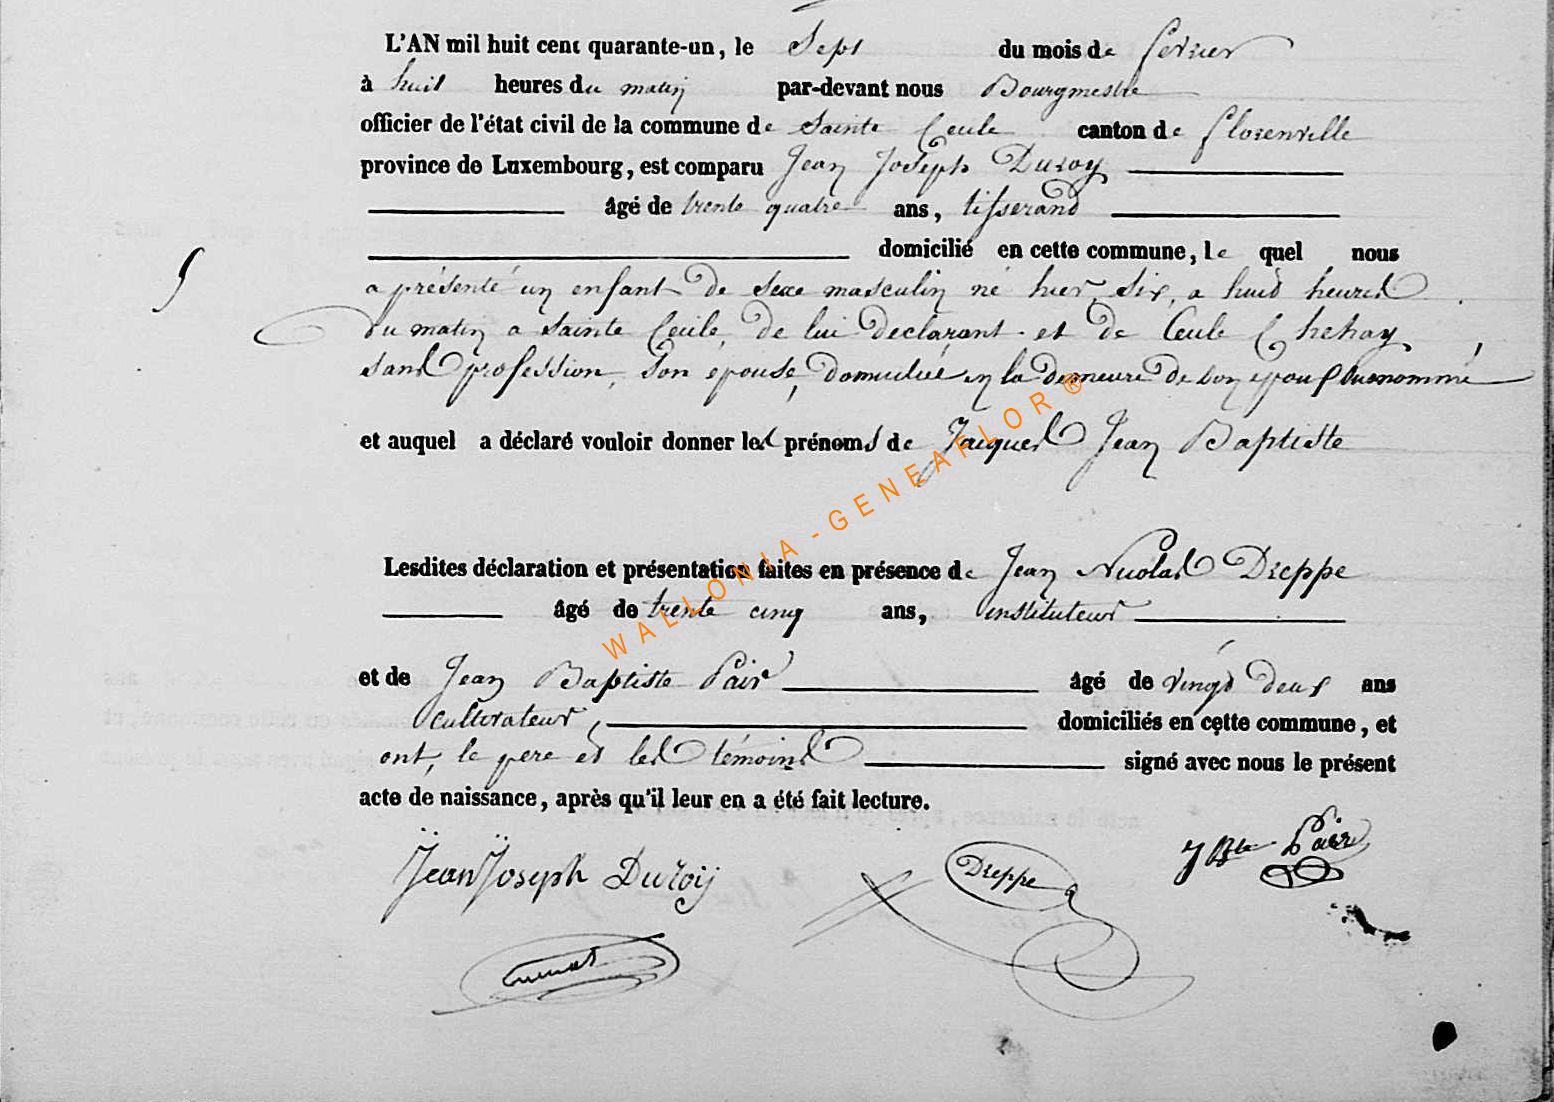 L'AN mil huit cent quarante-un, le Sept du mois de fevrier
à huit heures du matin par-devant nous Bourgmestre
officier de l'état civil de la commune de Sainte Cecile canton de florenville
province de Luxembourg, est comparu Jean Joseph Duroy
âgé de trente quatre ans, tisserand
domicilié en cette commune, le quel nous
5
a présenté un enfant de sexe masculin né hier six, a huit heures
du matin a Sainte Cecile, de lui declarant et de Cecile Chehay,
sans profession, son épouse, domiciliée en la demeure de son epoux susnommé
et auquel a déclaré vouloir donner les prénoms de Jacques Jean Baptiste
Lesdites déclaration et présentation faites en présence de Jean Nicolas Dreppe
âgé de trente cinq ans, instituteur
et de Jean Baptiste Pair âgé de vingt deux ans
cultivateur, domiciliés en cette commune, et
ont, le pere et les témoins signé avec nous le présent
acte de naissance, après qu'il leur en a été fait lecture.
Jean Joseph Duroij Dreppe J Bte Pair
WALLONIA - GENEAFLOR ®